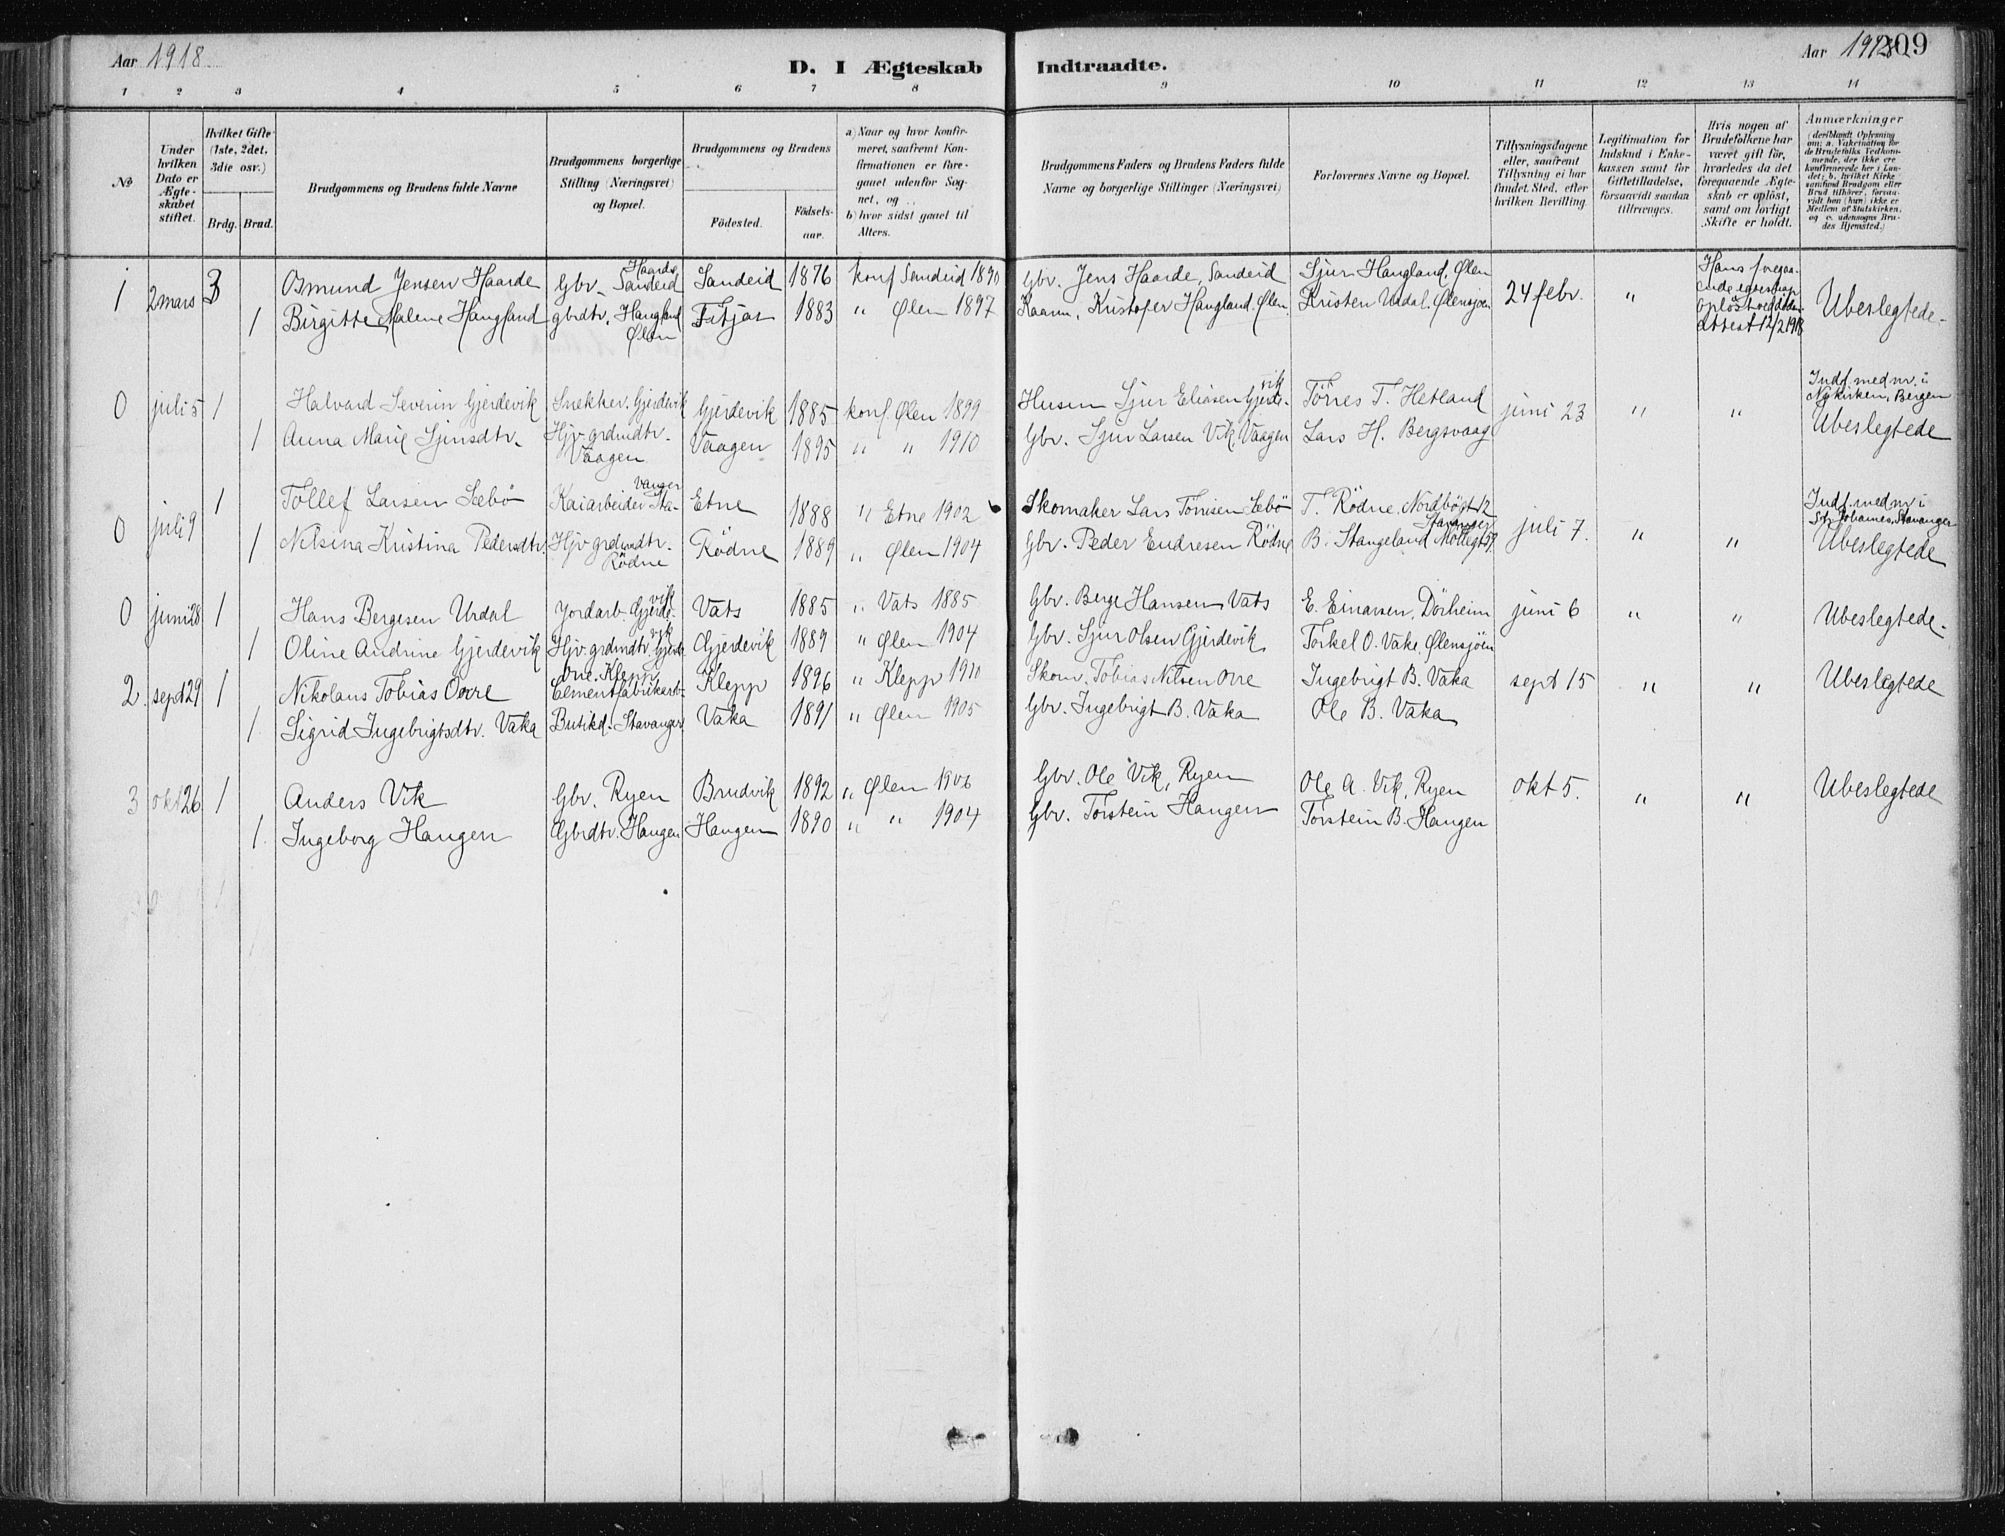 Aar 1918.
D. I Ægteskab Indtraadte.
Aar 1918
209
1 2 3 4 5 6 7 8 9 10 11 12 13 14
No
Under hvilken Dato er Ægteskabet stiftet.
Hvilket Gifte (1ste, 2det, 3die osv.)
Brdg. Brud.
Brudgommens og Brudens fulde Navne
Brudgommens borgerlige Stilling (Næringsvei) og Bopæl.
Brudgommens og Brudens
Fødested.
Fødselsaar.
a) Naar og hvor konfirmeret, saafremt Konfirmationen er foregaaet udenfor Sognet, og
b) hvor sidst gaaet til Alters.
Brudgommens Faders og Brudens Faders fulde Navne og borgerlige Stillinger (Næringsvei)
Forlovernes Navne og Bopæl.
Tillysningsdagene eller, saafremt Tillysning ei har fundet Sted, efter hvilken Bevilling.
Legitimation for Indskud i Enkekassen samt for Giftetilladelse, forsaavidt saadan tiltrænges.
Hvis nogen af Brudefolkene har været gift før, hvorledes da det foregaaende Ægteskab er opløst, samt om lovligt Skifte er holdt.
Anmærkninger (deriblandt Oplysning om: a. Vakcination for de Brudefolks Vedkommende, der ikke ere konfirmerede her i Landet; b. hvilket Kirkesamfund Brudgom eller Brud tilhører, forsaavidt han (hun) ikke er Medlem af Statskirken; og c. udensogns Brudes Hjemsted.)
1 2 mars 3 Osmund Jensen Haarde Gbr. Haarde Sandeid Sandeid 1876 konf Sandeid 1890 Gbr. Jens Haarde, Sandeid Sjur Haugland, Ølen 24 febr. " Hans foregaaende egteskap opløst ved døden attest 12/2 1918 Ubeslegtede
1 Birgitte Malene Haugland gbrdtr. Haugland Ølen Fitjar 1883 " Ølen 1897 Kaarm. Kristofer Haugland, Ølen Kristen Urdal, Ølensjøen
0 juli 5 1 Halvard Severin Gjerdevik Snekker. Gjerdevik Gjerdevik 1885 konf. Ølen 1899 Husm Sjur Eliasen Gjerdevik Törres T. Hetland juni 23 " " Indf. med nr. i Nykirken, Bergen Ubeslegtede
1 Anna Marie Sjursdtr. Hjv. grdmdtr. Vaagen Vaagen 1895 " " 1910 Gbr. Sjur Larsen Vik Vaagen Lars H. Bergsvaag
0 juli 9 1 Tollef Larsen Sæbö Kaiarbeider Stavanger Etne 1888 " Etne 1902 Skomaker Lars Tönisen Sæbö T. Rödne, Nordbögt 12 Stavanger juli 7. " " Indf. med nr i St. Johannes, Stavanger Ubeslegtede
1 Nilsina Kristina Pedersdtr. Hjv grdmdtr. Rödne Rödne 1889 " Ølen 1904 Gbr. Peder Endresen Rödne B. Stangeland Möllegt
0 juni 28 1 Hans Bergesen Urdal Jordarb. Gjerdevik Vats 1885 " Vats 1885 Gbr. Berge Hansen Vats E. Einarsen, Dörheim juni 6 " " Ubeslegtede.
1 Oline Andrine Gjerdevik Hjv. grdmdtr. Gjerdevik Gjerdevik 1889 " Ølen 1904 Gbr. Sjur Olsen Gjerdevik Torkel O. Vake, Ølensjöen
2. sept 29 1 Nikolaus Tobias Orre Orre. Klepp Cementfabrikarb. Klepp 1896 " Klepp 1910 Skom. Tobias Nilsen Orre Ingebrigt B. Vaka sept 15 " " Ubeslegtede
1. Sigrid Ingebrigtsdtr. Vaka Butikd. Stavanger Vaka 1891 " Ølen 1905 Gbr. Ingebrigt B. Vaka Ole B. Vaka
3 okt 26 1 Anders Vik Gbr. Ryen Brudvik 1892 " Ølen 1906 Gbr. Ole Vik, Ryen Ole A. Vik, Ryen okt 5. " " Ubeslegtede
1. Ingeborg Haugen Gbrdtr. Haugen Haugen 1890 " " 1904 Gbr. Torstein Haugen Torstein B. Haugen